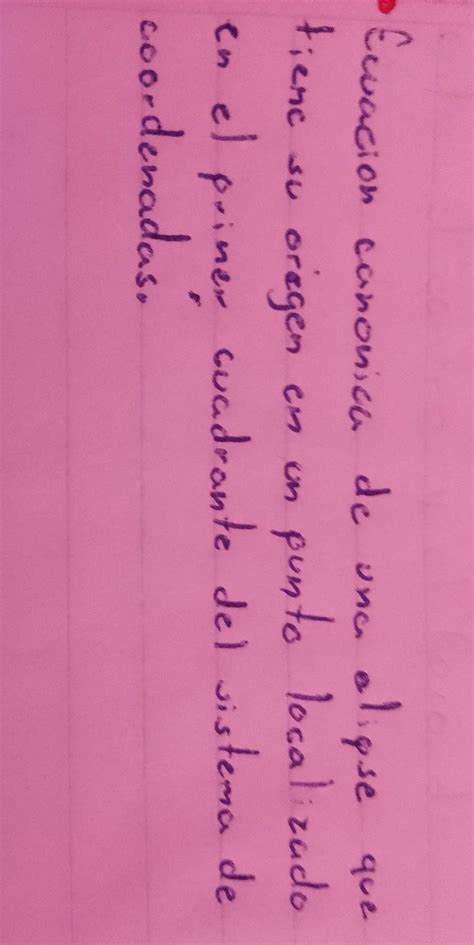 Ecuacion canonica de una elipse que
tiene su origen en un punto localizado
en el primer cuadrante del sistema de
coordenadas.